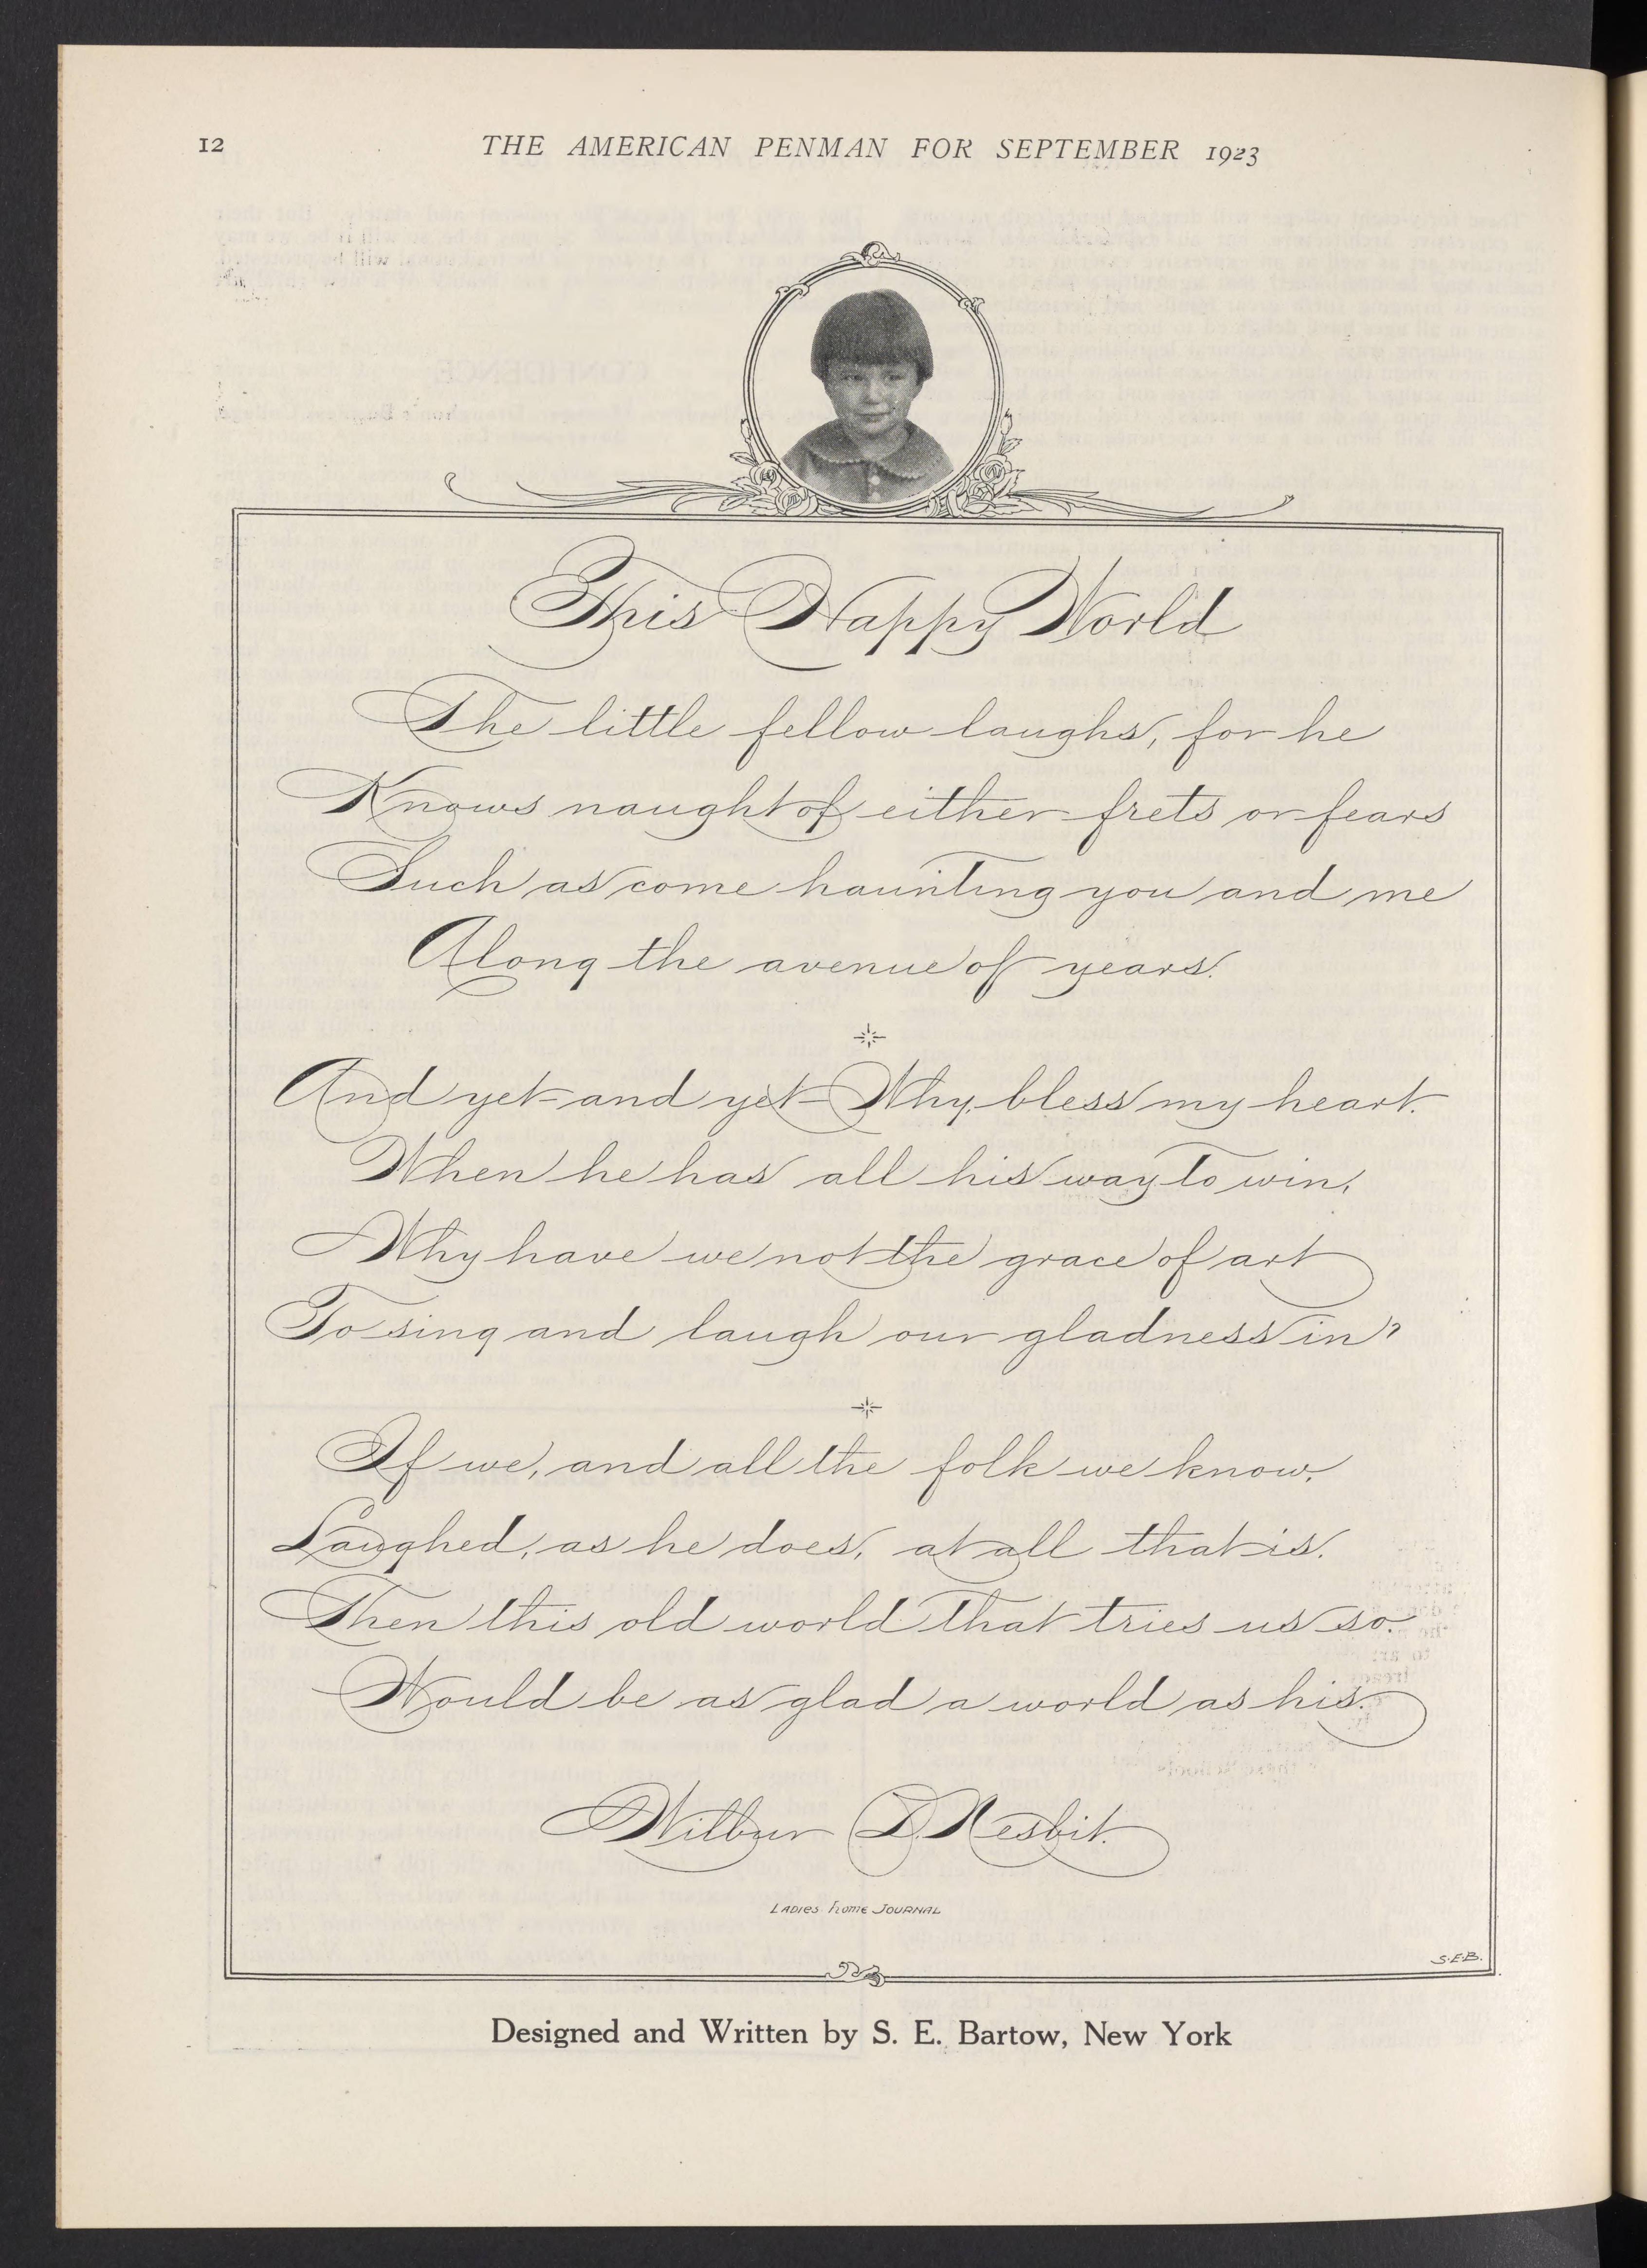 12 THE AMERICAN PENMAN FOR SEPTEMBER 1923
This Happy World
The little fellow laughs, for he
Knows naught of either frets or fears
Such as come haunting you and me
Along the avenue of years.
And yet and yet Why, bless my heart.
When he has all his way to win,
Why have we not the grace of art
To sing and laugh our gladness in?
If we, and all the folk we know,
Laughed, as he does, at all that is.
Then this old world that tries us so.
Would be as glad a world as his.
Wilbur D. Nesbit.
LADIES HOME JOURNAL
S.E.B.
Designed and Written by S. E. Bartow, New York